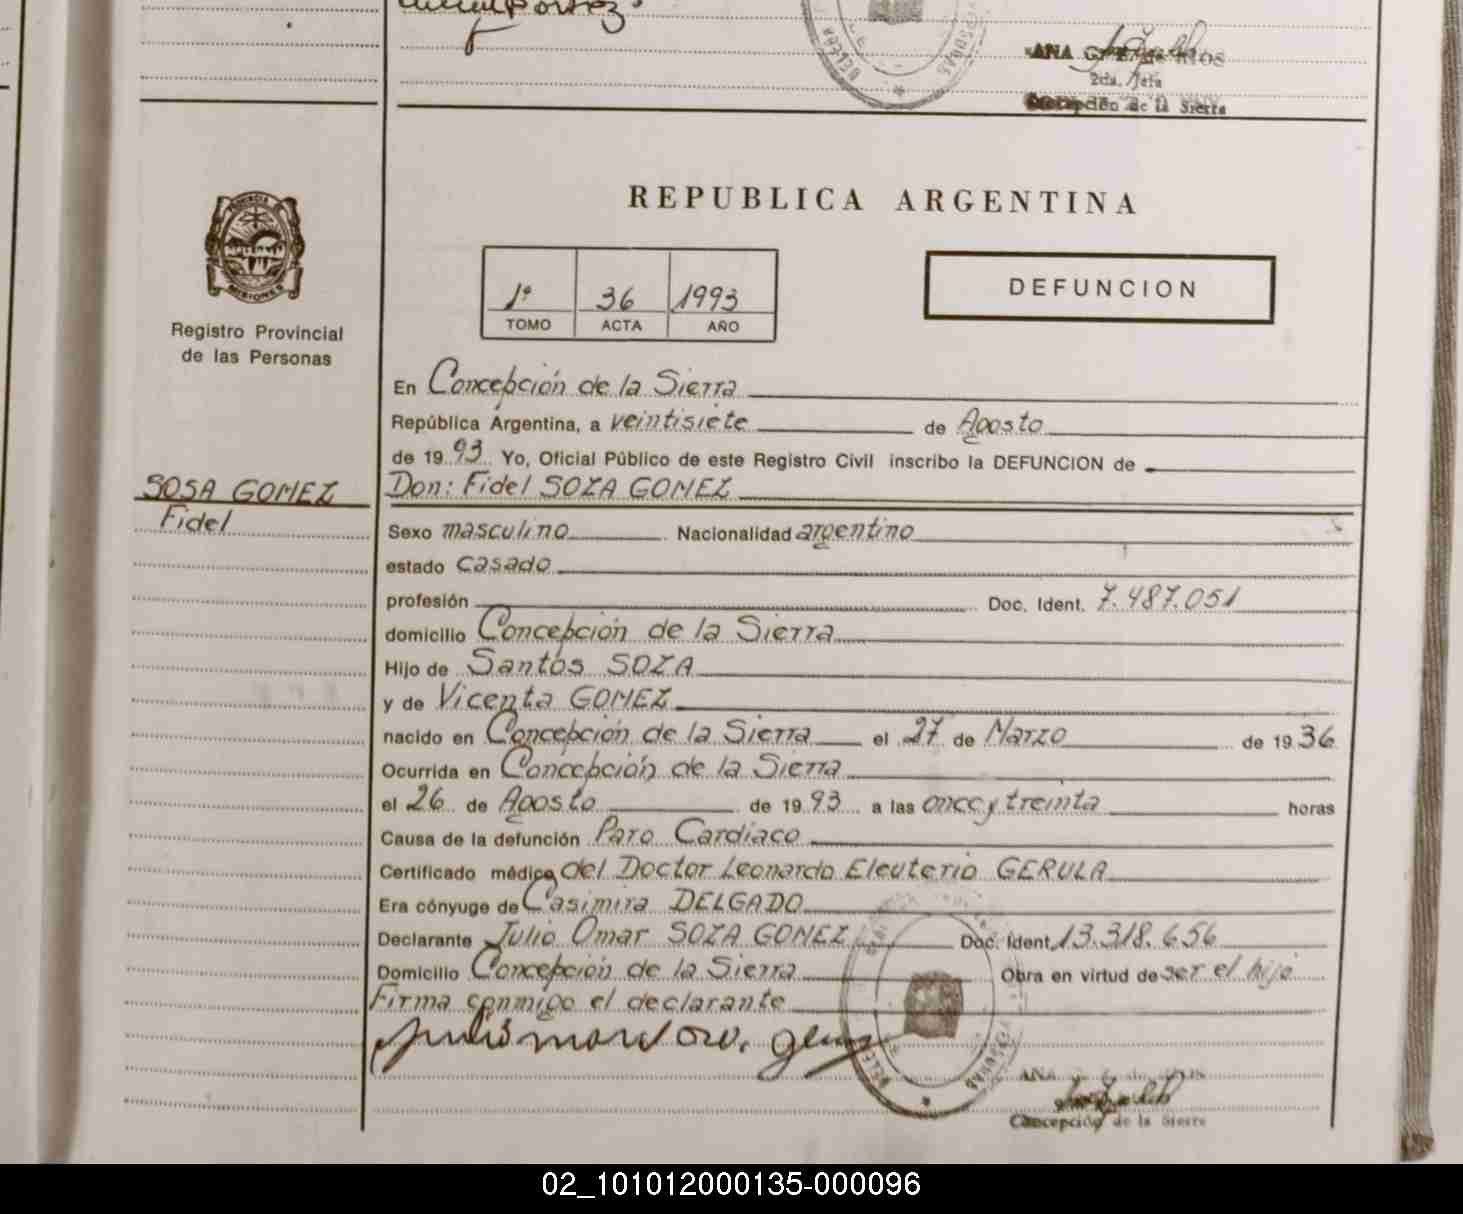 2da. Jefa
Concepción de la Sierra
REPUBLICA ARGENTINA
PROVINCIA
MISIONES
1º 36 1993
TOMO ACTA AÑO
DEFUNCION
Registro Provincial
de las Personas
SOSA GOMEZ
Fidel
En Concepción de la Sierra
República Argentina, a veintisiete de Agosto
de 19 93 Yo, Oficial Público de este Registro Civil inscribo la DEFUNCION de
Don: Fidel SOZA GOMEZ
Sexo masculino Nacionalidad argentino
estado casado
profesión Doc. Ident. 7.487.051
domicilio Concepción de la Sierra
Hijo de Santos SOZA
y de Vicenta GOMEZ
nacido en Concepción de la Sierra el 27 de Marzo de 19 36
Ocurrida en Concepción de la Sierra
el 26 de Agosto de 19 93 a las once y treinta horas
Causa de la defunción Paro Cardiaco
Certificado médico del Doctor Leonardo Eleuterio GERULA
Era cónyuge de Casimira DELGADO
Declarante Julio Omar SOZA GOMEZ Doc. Ident. 13.318.656
Domicilio Concepción de la Sierra Obra en virtud de ser el hijo
Firma conmigo el declarante
ANA
Concepción de la Sierra
02_101012000135-000096